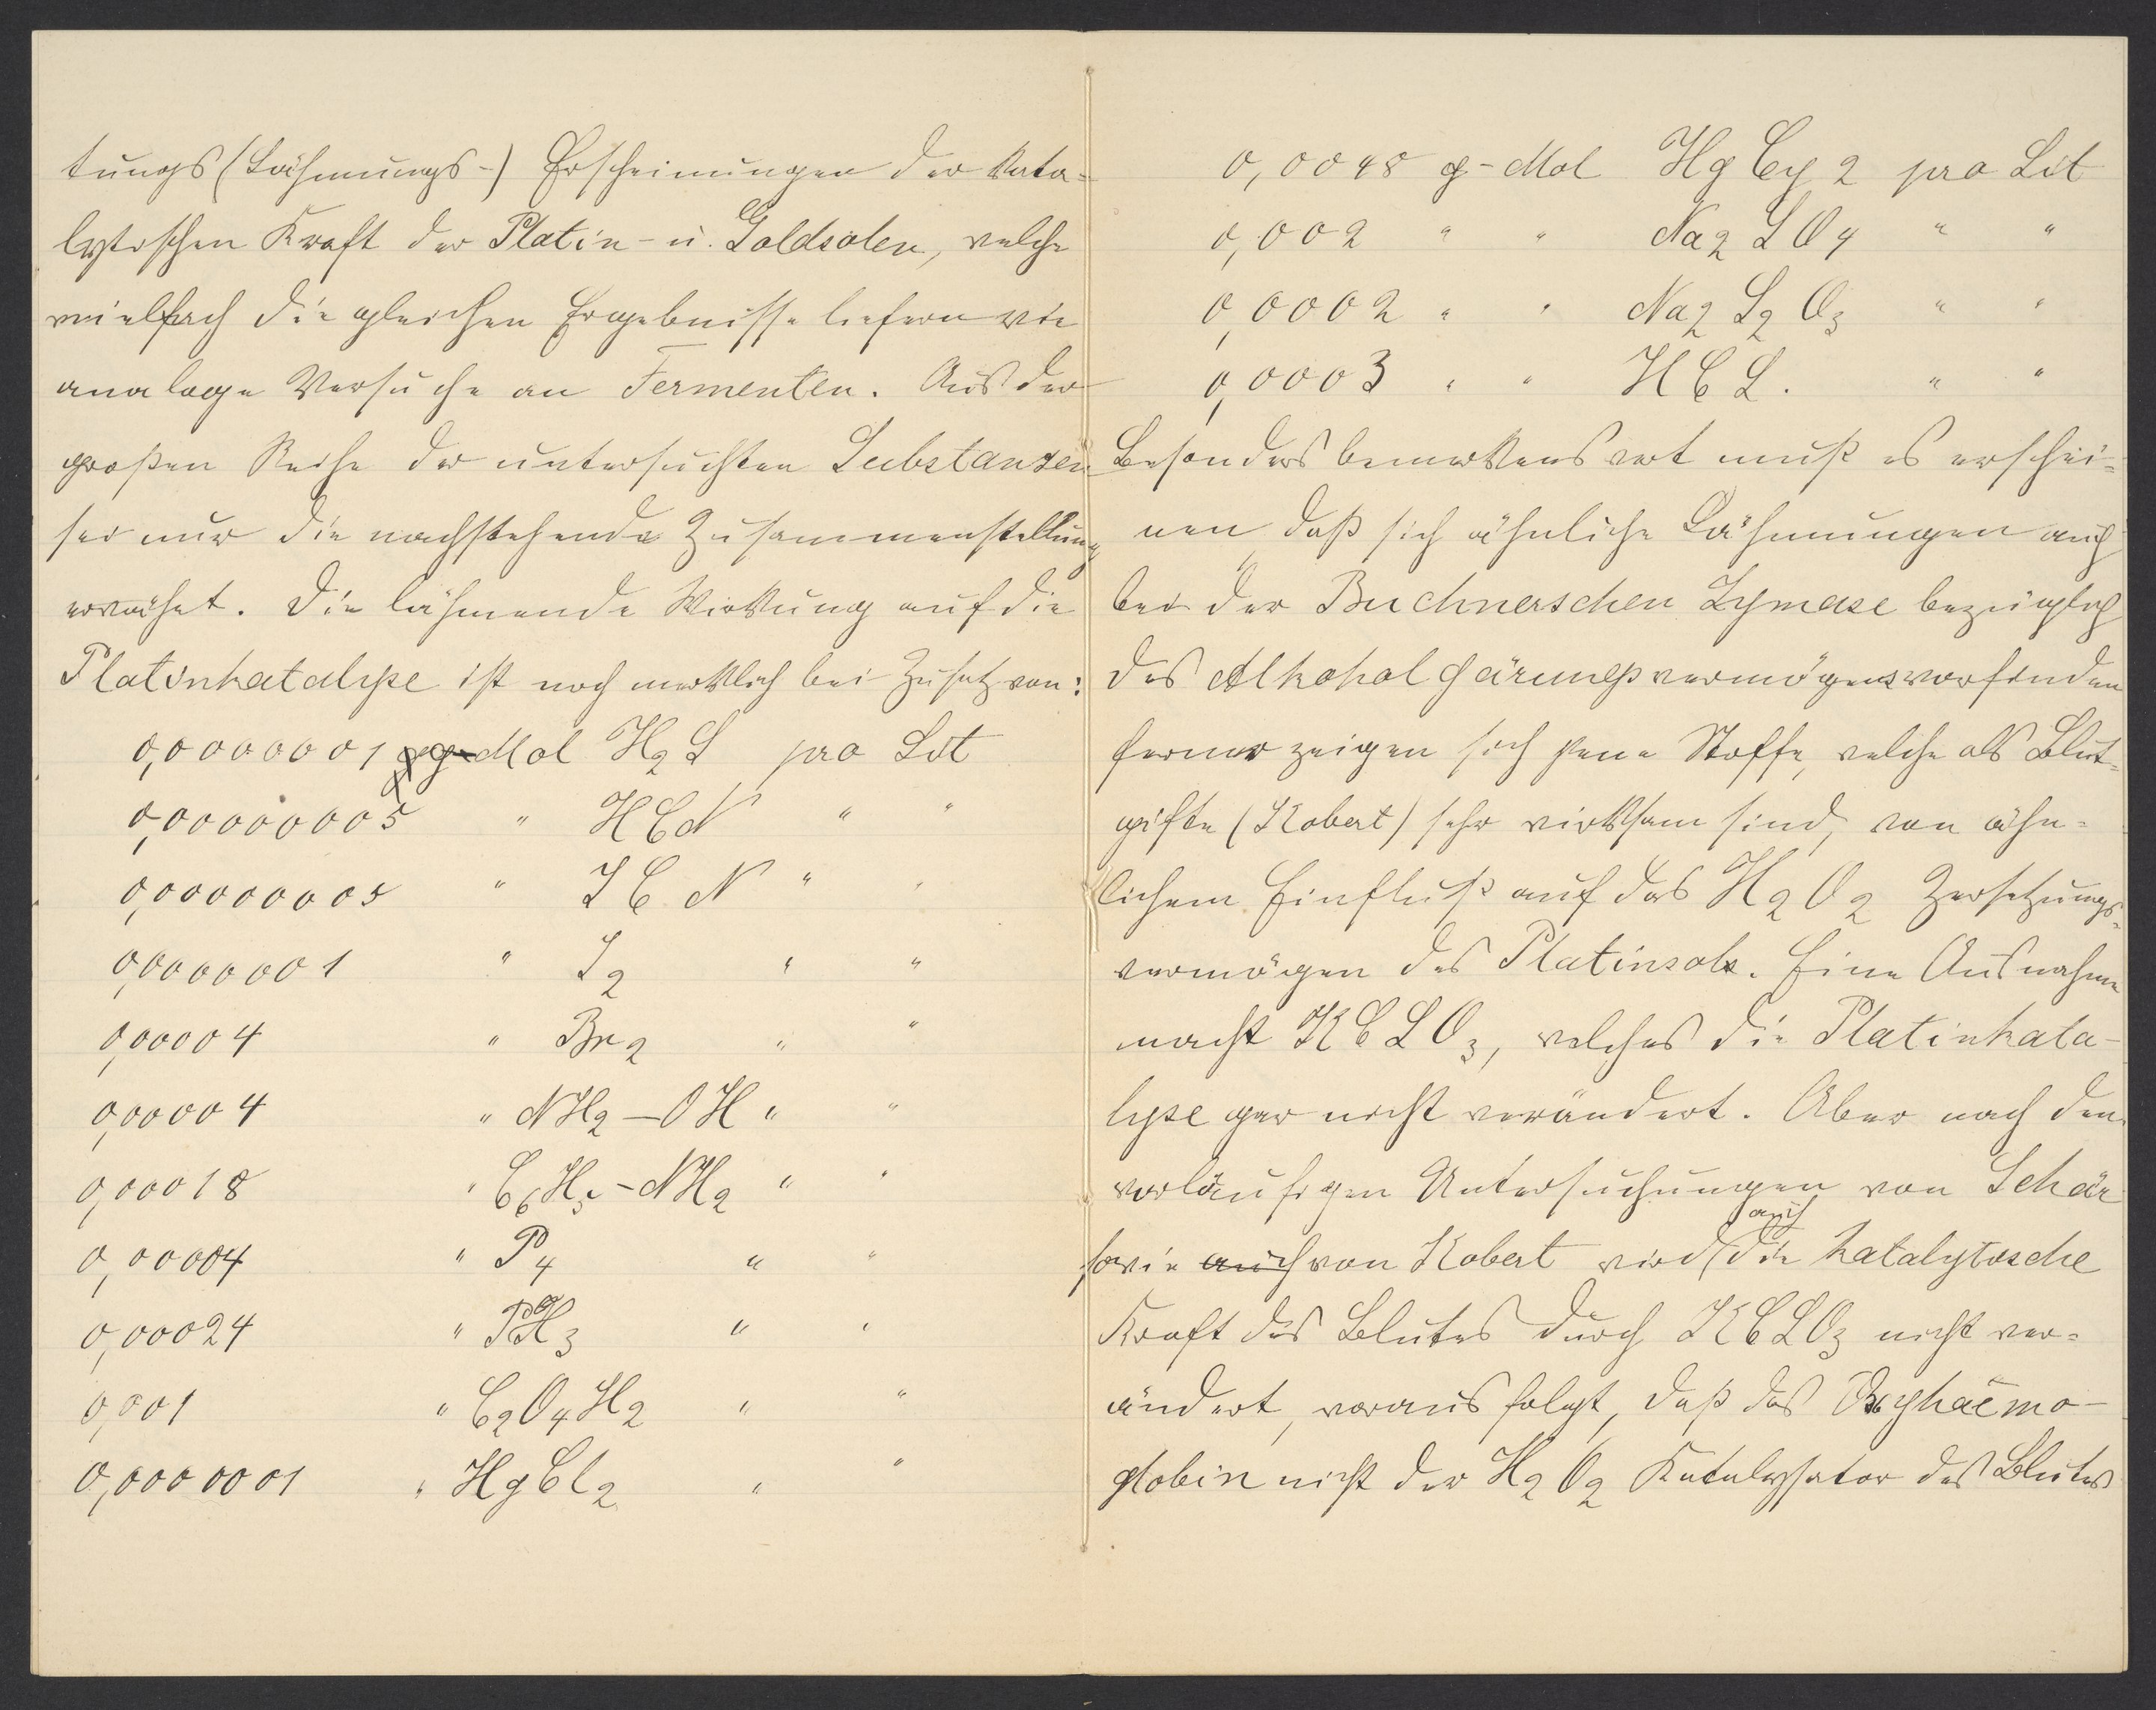 tungs (Lähmungs-) Erscheinungen der kata-
lytischen Kraft der Platin- u. Goldsolen, welche
vielfach die gleichen Ergebnisse liefern wie
analoge Versuche an Fermenten. Aus der
großen Reihe der untersuchten Substanzen
sei nur die nachstehende Zusammenstellung
erwähnt. Die lähmende Wirkung auf die
Platinkatalyse ist noch merklich bei Zusatz von:
0,0000001 g-Mol H2S pro Lit
0,000000005 " HCN " "
0,000000005 " JCN " "
0,0000001 " J2 " "
0,00004 " Br2 " "
0,00004 " NH2-OH " "
0,00018 " C6H5-NH2 " "
0,00004 " P4 " "
0,00024 " PH3 " "
0,001 " C2O4H2 " "
0,0000001 " HgCl2 " "
0,0048 g-Mol HgCy2 pro Lit
0,002 " " Na2SO4 " "
0,0002 " " Na2S2O3 " "
0,0003 " " HCL. " "
Besonders bemerkenswert muß es erschei-
nen, daß sich ähnliche Lähmungen auch
bei der Buchnerschen Zymase bezüglich
des Alkohol Gärungsvermögens vorfinden
ferner zeigen sich jene Stoffe, welche als Blut-
gifte (Kobert) sehr wirksam sind, von ähn-
lichem Einfluß auf das H2O2 Zersetzungs-
vermögen des Platinsols. Eine Ausnahme
macht KCLO3, welches die Platinkata-
lyse gar nicht verändert. Aber nach den
vorläufigen Untersuchungen von Schär
sowie auch von Kobert wird auch die katalytische
Kraft des Blutes durch KCLO3 nicht ver-
ändert, woraus folgt, daß das Oxyhaemo-
globin nicht der H2O2 Katalysator des Blutes